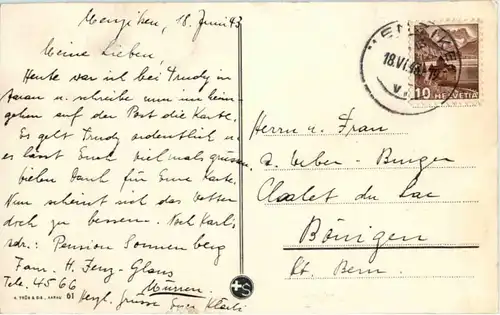 Menziken, 18. Juni 43
Meine Lieben,
Heute war ich bei Trudy in
Aarau u. schreibe nun im heim-
gehen auf der Post die Karte.
Es geht Trudy ordentlich u.
es lässt Euch vielmals grüssen.
Vielen Dank für Eure Karte.
Nun scheint sich das Wetter
doch zu bessern. Noch Karli's
Adr.: Pension Sonnenberg
Fam. H. Feuz-Glaus
Tele. 4566 Mürren.
Herzl. Grüsse Euer
A. TRÜB & CIE., AARAU 01
+S
MENZIKEN
18.VI.43
10 HELVETIA
Herrn u. Frau
Weber-Burger
Chalet du Lac
Bönigen
Kt. Bern.